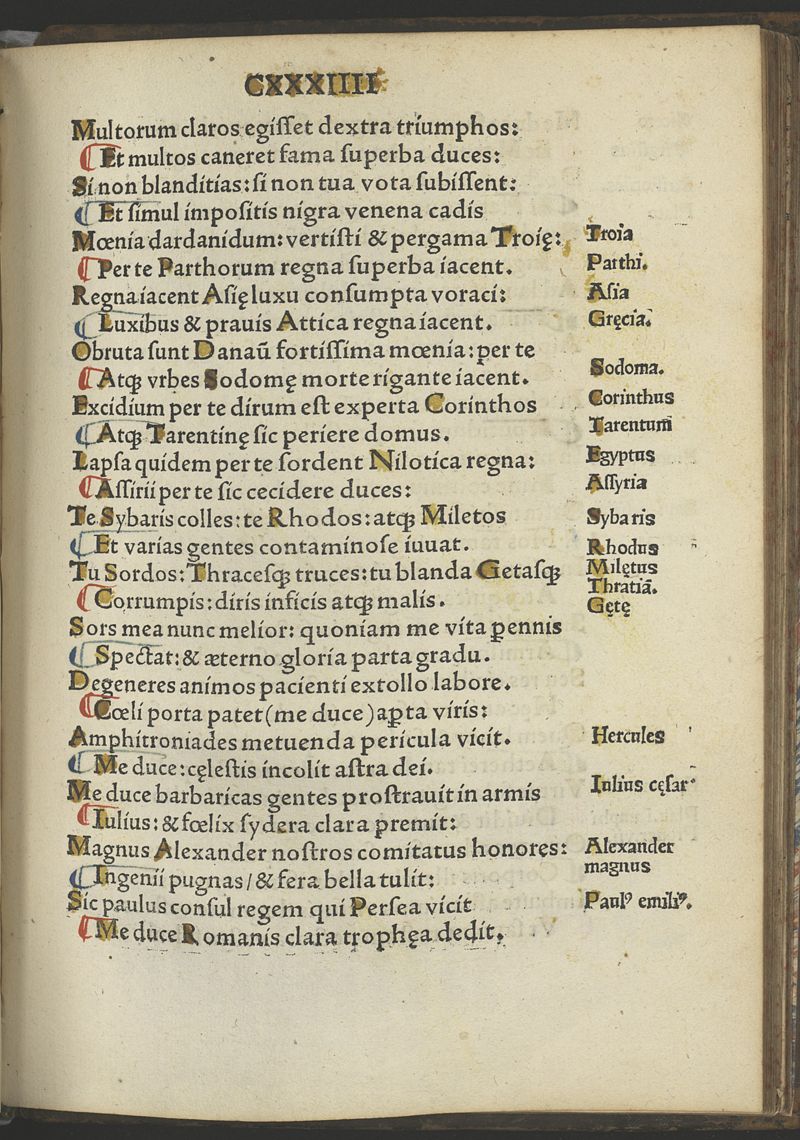 CXXXIIII
Multorum claros egiſſet dextra triumphos:
¶Et multos caneret fama ſuperba duces:
Si non blanditias: ſi non tua vota ſubiſſent:
¶Et ſimul impoſitis nigra venena cadis
Mœnia dardanidum: vertiſti & pergama Troię: Troia
¶Per te Parthorum regna ſuperba iacent. Parthi.
Regna iacent Aſię luxu conſumpta voraci: Aſia
¶Luxibus & prauis Attica regna iacent. Gręcia.
Obruta ſunt Danaũ fortiſſima mœnia: ꝑ te
¶Atqꝫ vrbes Sodomę morte rigante iacent. Sodoma.
Excidium per te dirum eſt experta Corinthos Corinthus
¶Atqꝫ Tarentinę ſic periere domus. Tarentum
Lapſa quidem per te ſordent Nilotica regna: Egyptus
¶Aſſirii per te ſic cecidere duces: Aſſyria
Te Sybaris colles: te Rhodos: atqꝫ Miletos Sybaris
¶Et varias gentes contaminoſe iuuat. Rhodus
Tu Sordos: Thraceſqꝫ truces: tu blanda Getaſqꝫ Milętus
Thratiã.
¶Corrumpis: diris inficis atqꝫ malis. Gętę
Sors mea nunc melior: quoniam me vita ꝑennis
¶Spectat: & æterno gloria parta gradu.
Degeneres animos pacienti extollo labore.
¶Cœli porta patet (me duce) aꝑta viris:
Amphitroniades metuenda pericula vicit. Hercules
¶Me duce: cęleſtis incolit aſtra dei.
Me duce barbaricas gentes proſtrauit in armis Iulius cęſar
¶Iulius: & fœlix ſydera clara premit:
Magnus Alexander noſtros comitatus honores: Alexander
magnus
¶Ingenii pugnas / & fera bella tulit:
Sic paulus conſul regem qui Perſea vicit Paulꝰ emiliꝰ.
¶Me duce Romanis clara trophęa dedit.